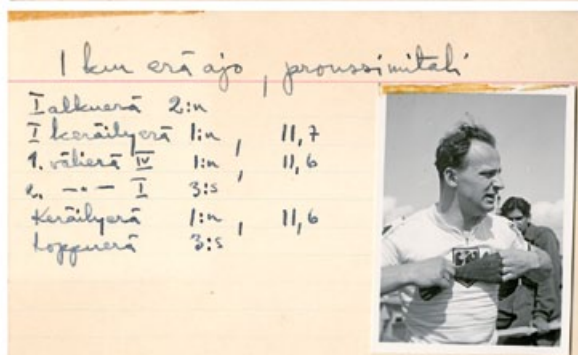 1 km erä ajo, pronssimitali
I alkuerä 2:n
I keräilyerä 1:n, 11,7
1. välierä IV 1:n, 11,6
2. –"– I 3:s
Keräilyerä 1:n, 11,6
Loppuerä 3:s